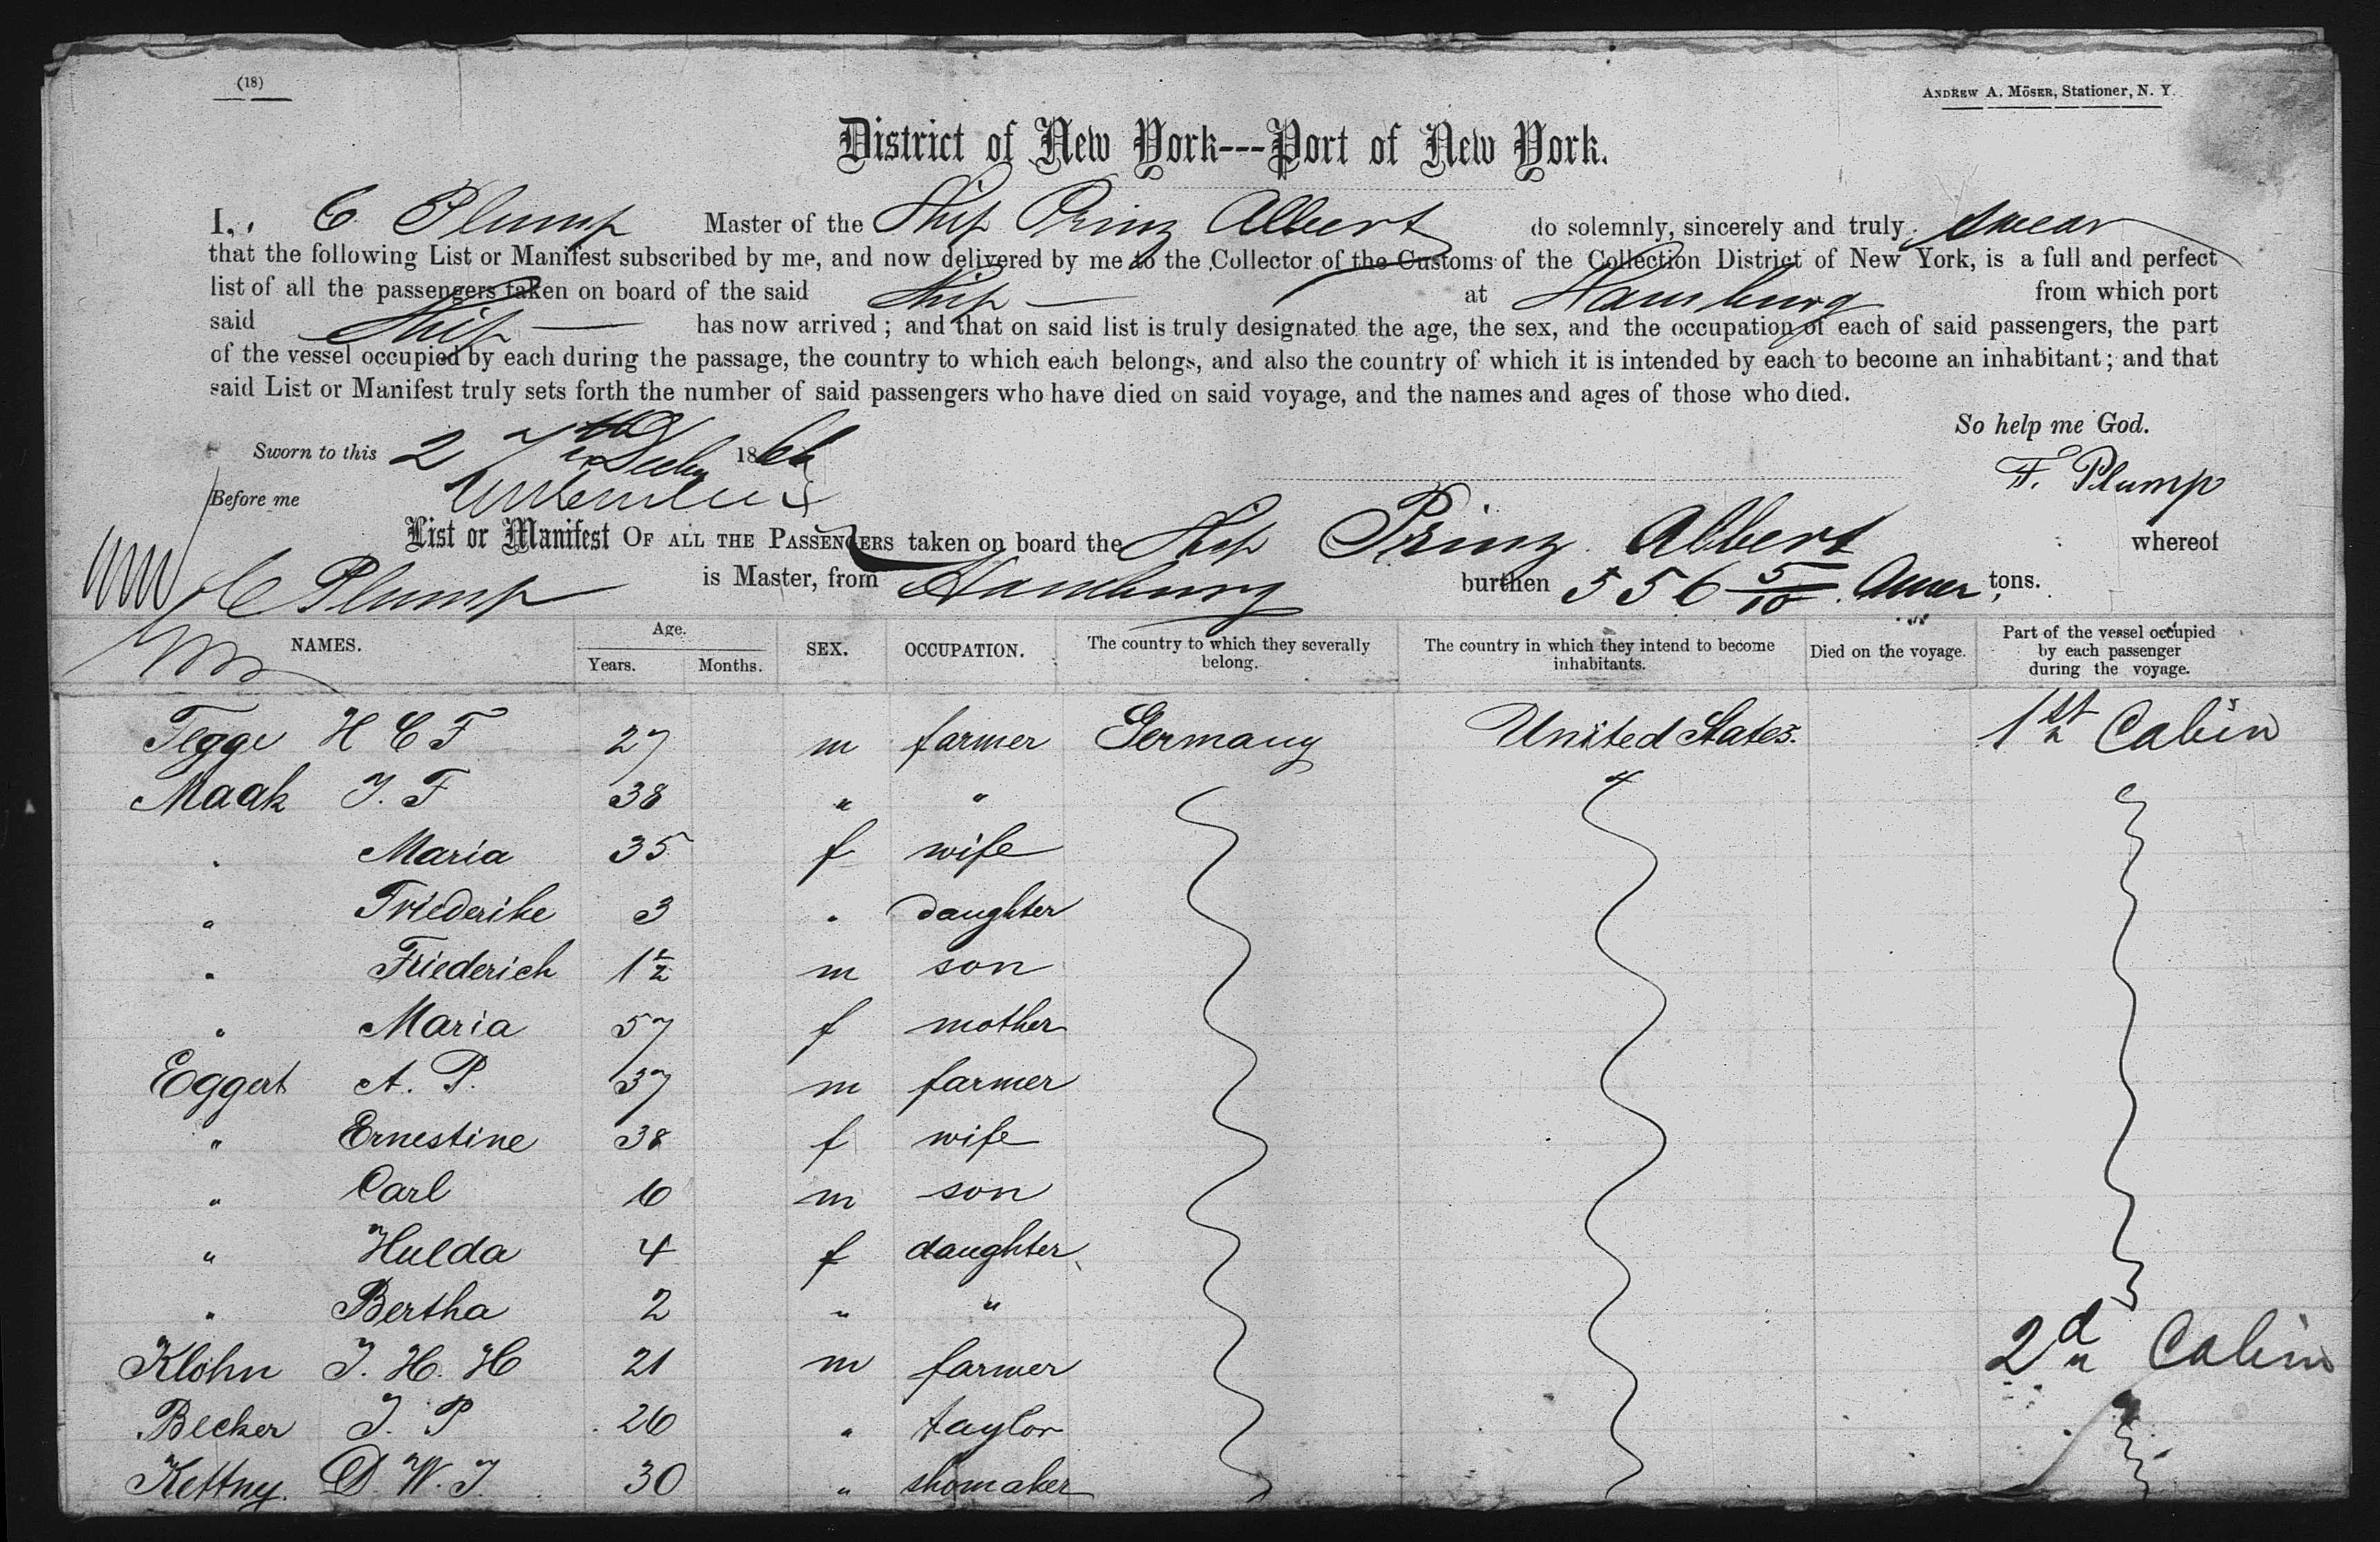 (18)
ANDREW A. MÖSER, Stationer, N. Y.
District of New York---Port of New York.
I, C. Plump Master of the Ship Prinz Albert do solemnly, sincerely and truly swear
that the following List or Manifest subscribed by me, and now delivered by me to the Collector of the Customs of the Collection District of New York, is a full and perfect
list of all the passengers taken on board of the said Ship at Hamburg from which port
said Ship has now arrived; and that on said list is truly designated the age, the sex, and the occupation of each of said passengers, the part
of the vessel occupied by each during the passage, the country to which each belongs, and also the country of which it is intended by each to become an inhabitant; and that
said List or Manifest truly sets forth the number of said passengers who have died on said voyage, and the names and ages of those who died.
So help me God.
Sworn to this 27th Decbr 1866
F. Plump
Before me
List or Manifest OF ALL THE PASSENGERS taken on board the Ship Prinz Albert whereof
C Plump is Master, from Hamburg burthen 556 5/10 Amer tons.
NAMES. Age. Years. Months. SEX. OCCUPATION. The country to which they severally belong. The country in which they intend to become inhabitants. Died on the voyage. Part of the vessel occupied by each passenger during the voyage.
Tegge H C F 27 m farmer Germany United States. 1st Cabin
Maak J. F 38 " "
" Maria 35 f wife
" Friederike 3 " daughter
" Friederich 1½ m son
" Maria 57 f mother
Eggert A. P. 37 m farmer
" Ernestine 38 f wife
" Carl 6 m son
" Hulda 4 f daughter
" Bertha 2 " "
Klohn J. H. H 21 m farmer 2d Cabin
Becker J. P 26 " taylor
Kettny. D. W. J. 30 " shomaker